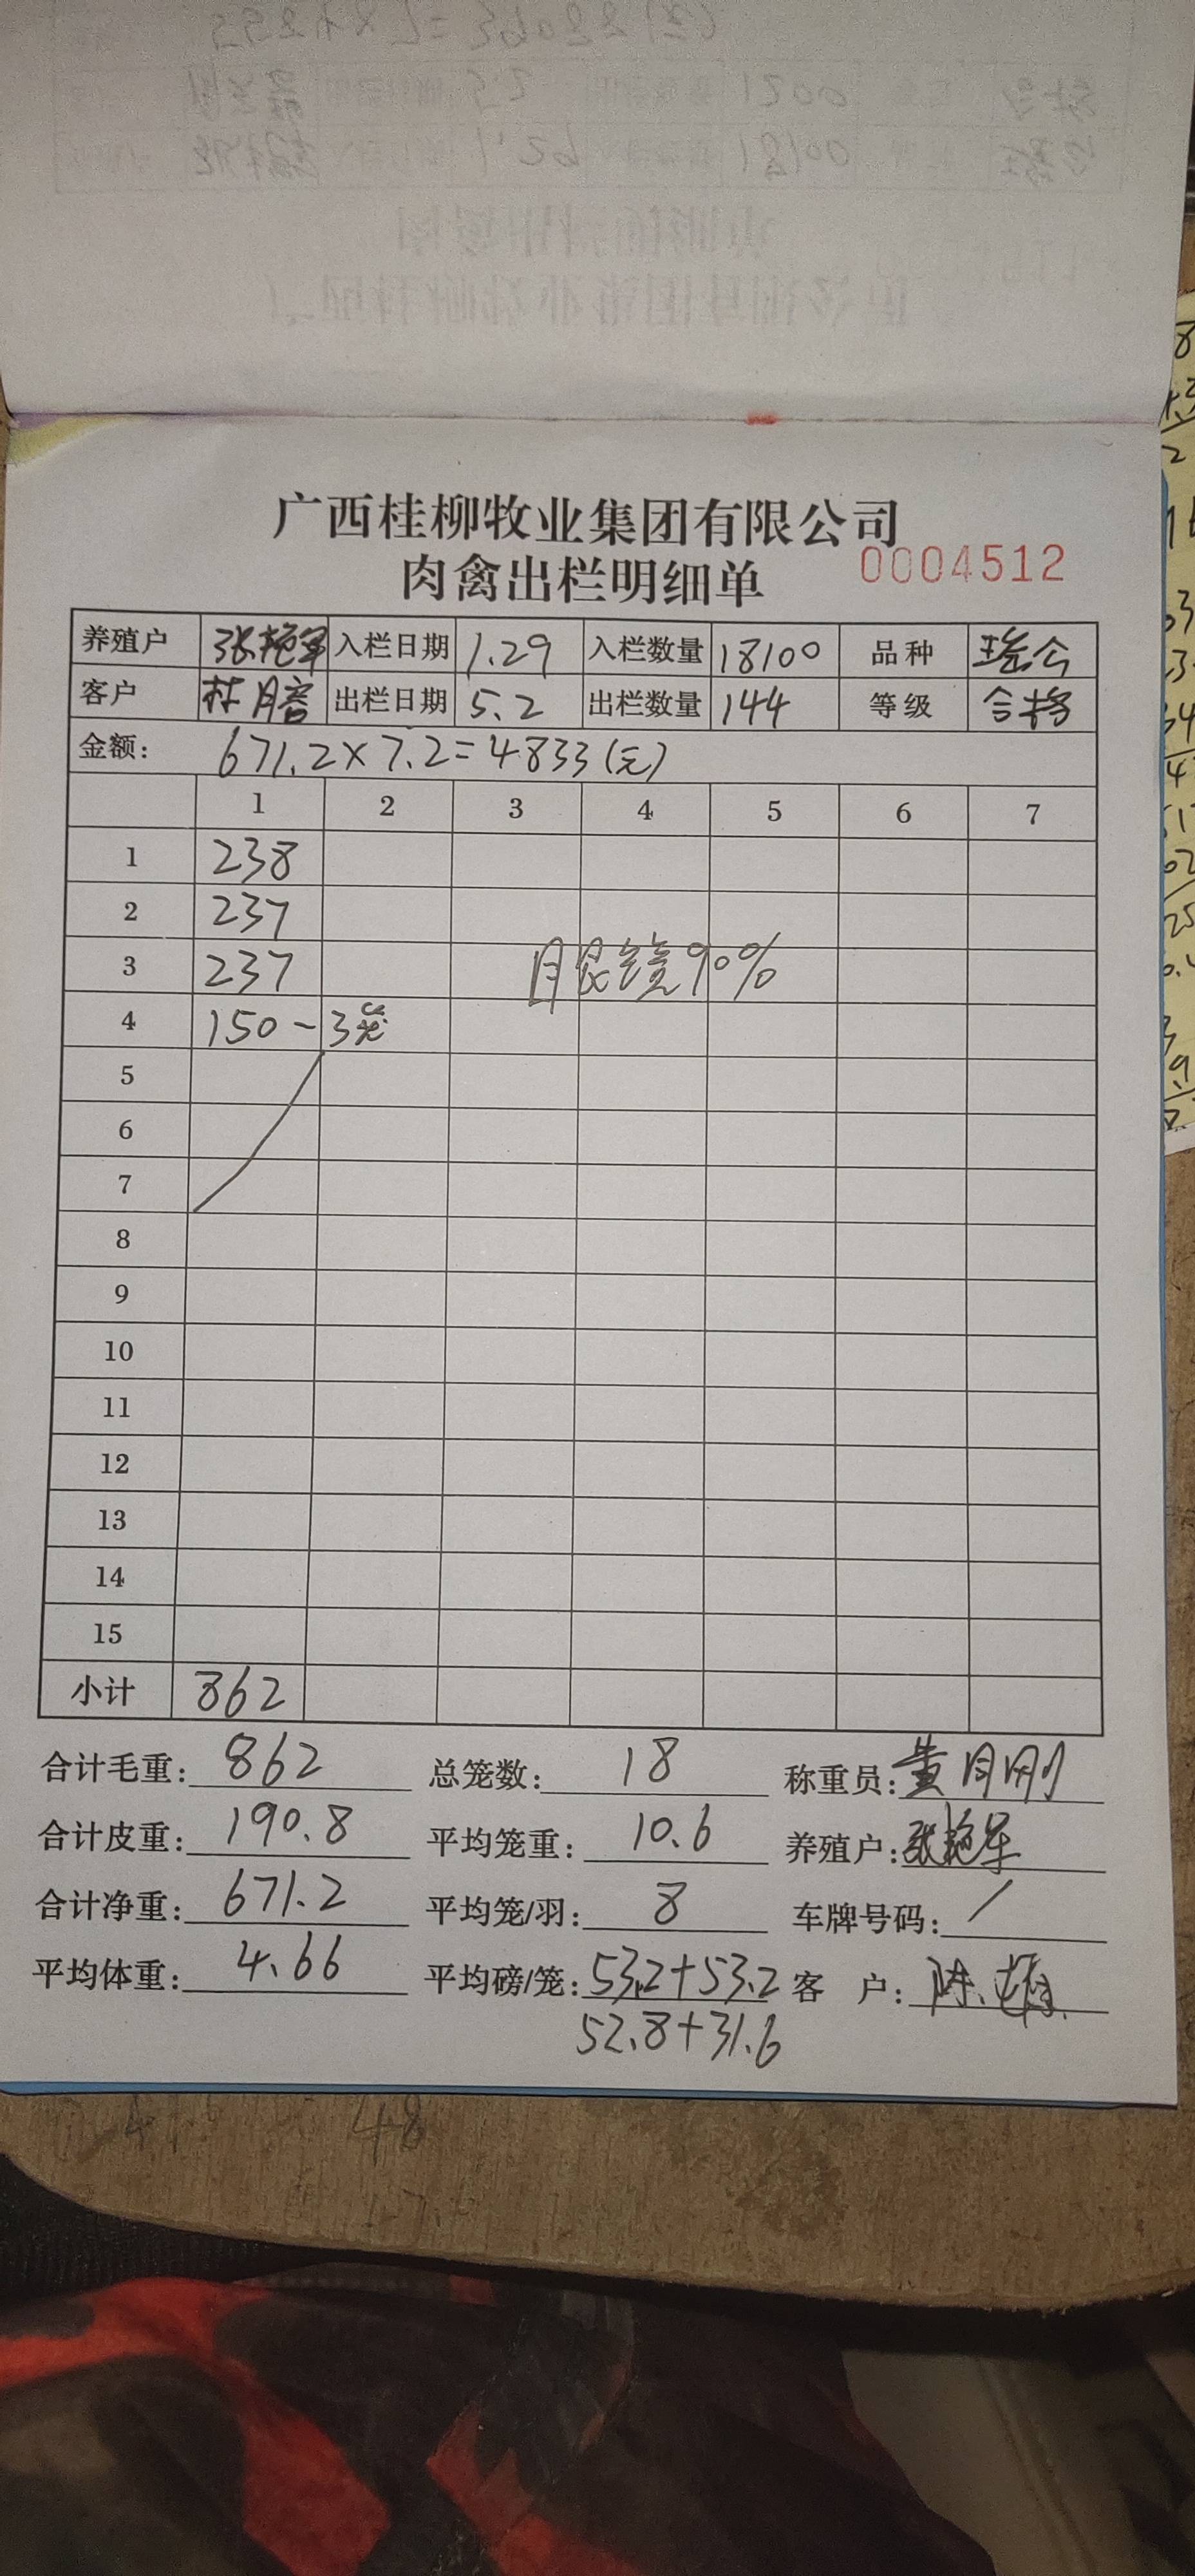 广西桂柳牧业集团有限公司
肉禽出栏明细单 0004512
养殖户 张艳军 入栏日期 1.29 入栏数量 18100 品种 瑶公
客户 林月音 出栏日期 5.2 出栏数量 144 等级 合格
金额: 671.2×7.2=4833(元)
1 2 3 4 5 6 7
1 238
2 237
3 237 眼镜90%
4 150-3笼
5
6
7
8
9
10
11
12
13
14
15
小计 862
合计毛重: 862 总笼数: 18 称重员: 黄月刚
合计皮重: 190.8 平均笼重: 10.6 养殖户: 张艳军
合计净重: 671.2 平均笼/羽: 8 车牌号码: /
平均体重: 4.66 平均磅/笼: 53.2+53.2 客 户: 陈
52.8+31.6